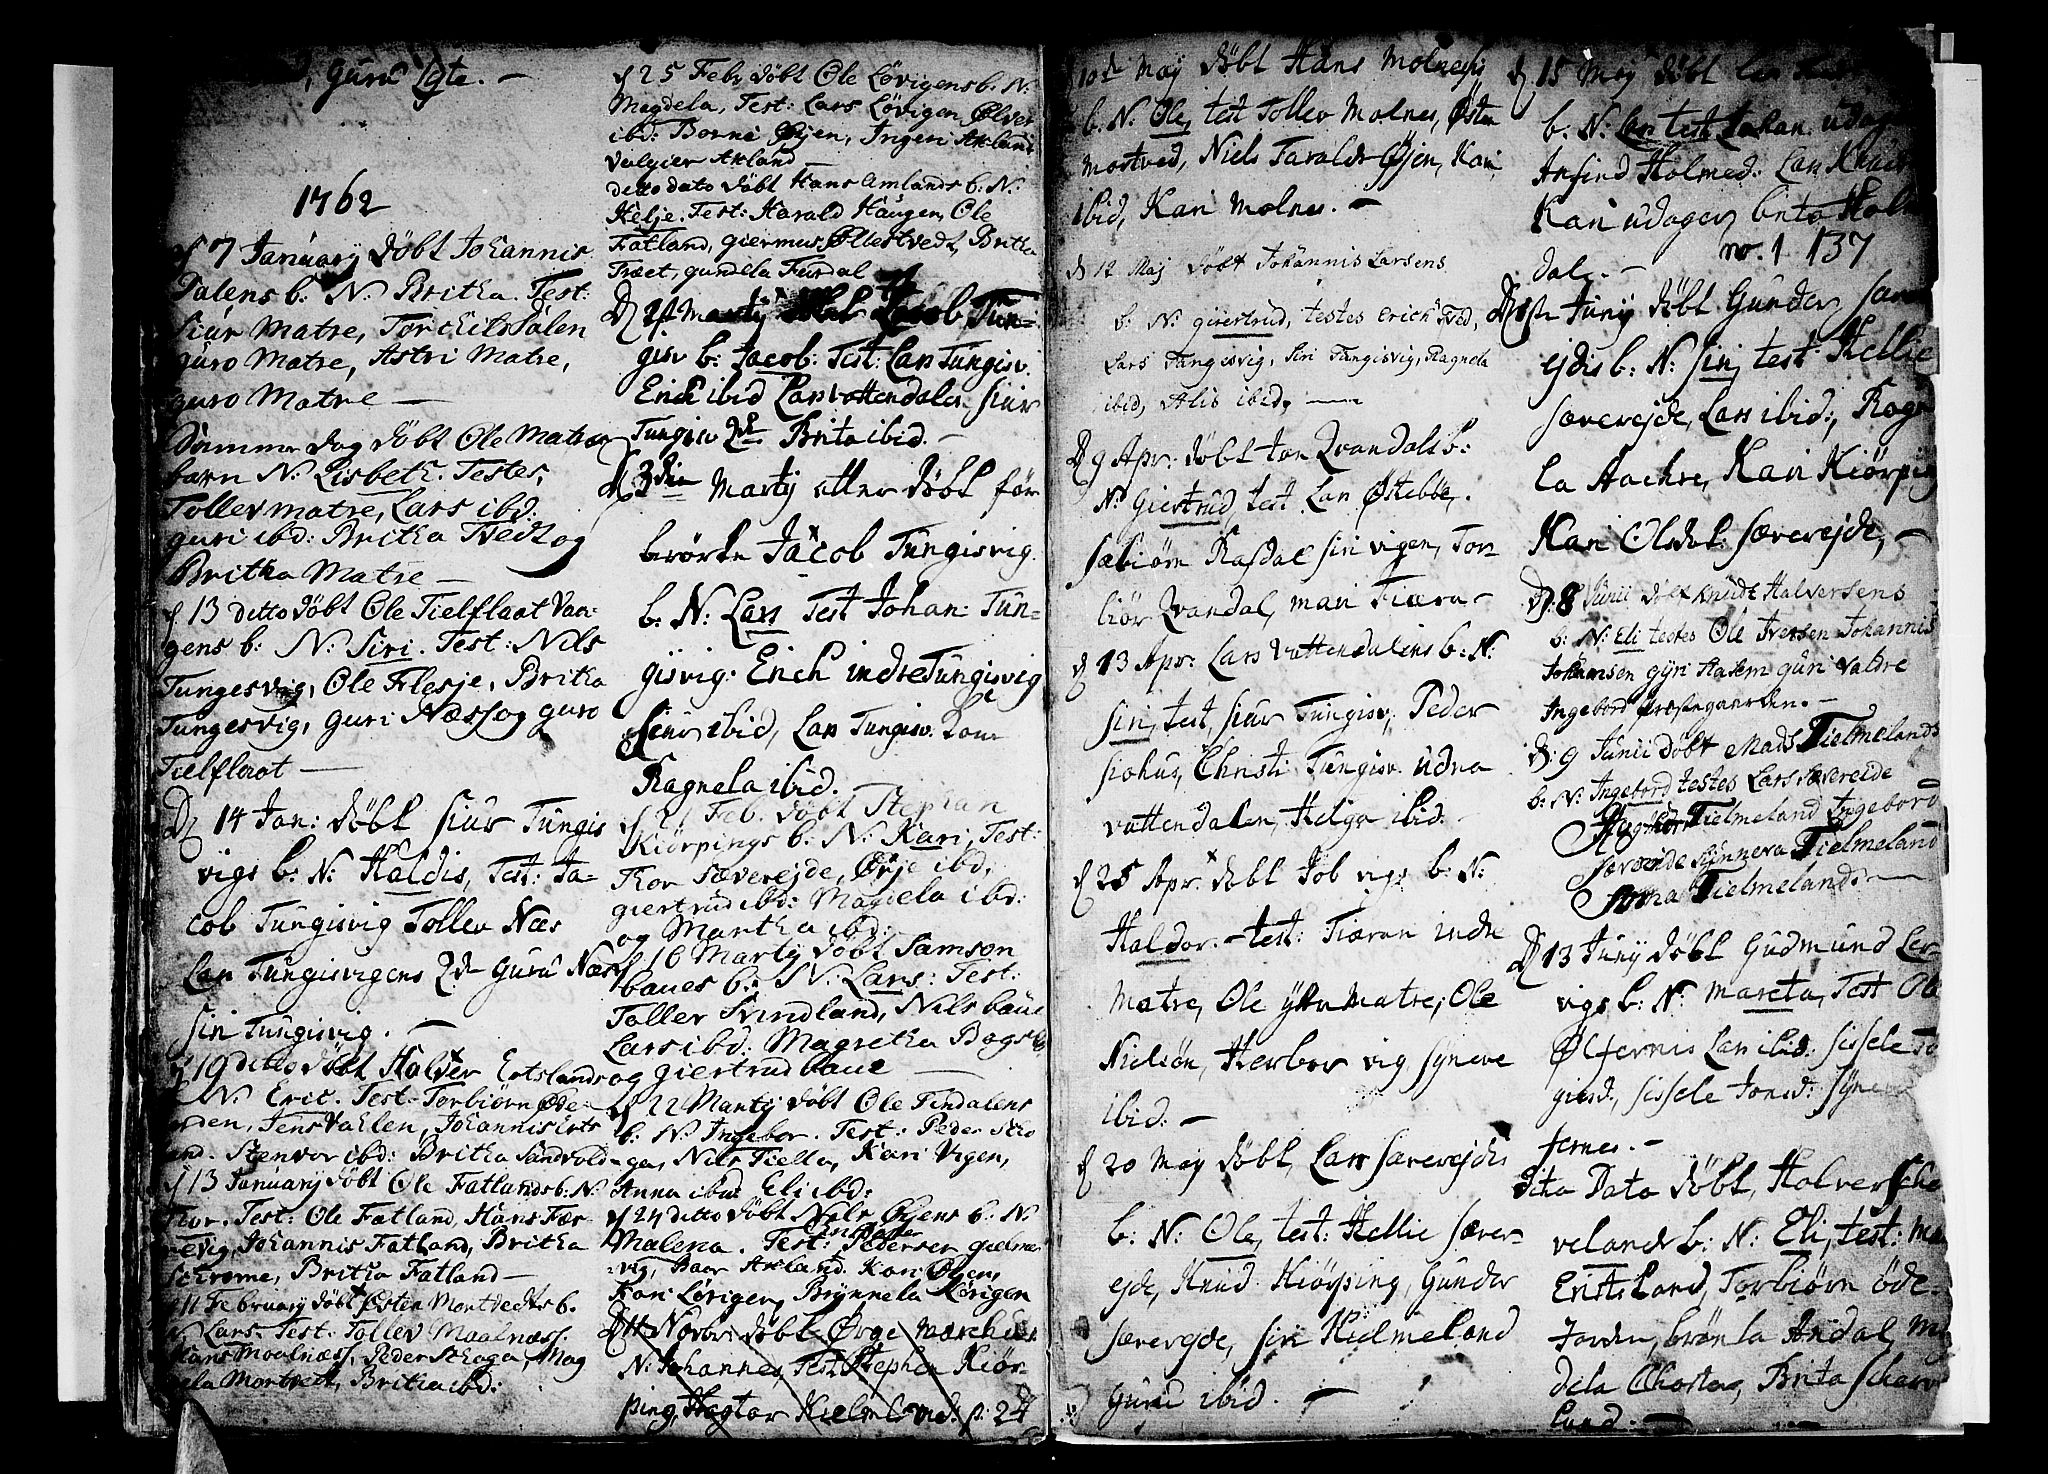 Guru Lÿte. –
1762
d 7 Januarÿ döbt Johannis
Dalens b: N: Britha. Test:
Siur Matre, Torchils Dalen
guro Matre, Astri Matre,
guro Matre —
Samme dag döbt Ole Matres
barn N: Lisbeth. Testes,
Tollev matre, Lars ibd:
guri ibd: Britha Tvedt og
Britha Matre —
d. 13 ditto döbt Ole Tielflaat Van-
gens b: N: Siri. Test: Nils
Tungesvig, Ole Flesje, Britha
Tungesvig, guri Næss og guro
Tielflaat —
D 14 Jan: döbt Siur Tungis
vigs b: N: Haldis, Test: Ja-
cob Tungisvig Tollev Næs
Lars Tungisvigens Guru Næss
Siri Tungisvig. —
d 19 ditto döbt Halver Ertslands
N: Eric. Test: Torbiörn Øde-
orden, Jens Vahlen, Johannis Erts
land. Stenvor ibd: Britha Sandvold
d 13 Januarÿ döbt Ole Fatlands b: N:
Thor. Test: Ole Fatland, Hans Fær-
revig, Johannis Fatland, Britha
Schrome, Britha Fatland —
d 11 Februarÿ döbt Østen Mortvedts b.
N: Lars. Test: Tollev Maalnæss.
Hans Moalnæss, Peder Schoga, Mag
dela Mortvedt, Britha ibd:
d 25 Febr döbt Ole Lövigens b: N:
Magdela, Test: Lars Lövigen Ølver
ibd: Borni Øyen, Ingeri Akland
Valgier Akland —
ditto dato döbt Hans Amlands b: N:
Helje. Test: Harald Haugen, Ole
Fatland, giermus Øllestvedt, Britha
Træet, gundela Furdal
D Martÿ Jacob Tun-
gisv b: Jacob: Test: Lars Tungisv.
Erich ibid Lars vattendalen Siur
Tungisv Brita ibid. —
D 3die Martÿ atter döbt för
berörte Jacob Tungisvig.
b: N: Lars Test Johan: Tun-
gisvig. Erich indre Tungisvig
Siur ibid, Lars Tungisv.
Ragnela ibid.
d 21 Feb. döbt Stephan
Kiörpings b: N: Kari, Test:
Thor Sæverejde, Ørje ibd,
giertrud ibd: Magdela ibd:
og Martha ibd:
d 16 Martÿ döbt Samson
baues b: N: Lars: Test:
Toller Svindland, Nils baue
Lars ibd: Magretha
og giertrud baue
d 22 Martÿ döbt Ole Tindalens
b: N: Ingebor. Test: Peder Scho
ga, Nils Tiella, Kari Vigen,
Anna ibid: Eli ibd:
d 24 ditto döbt Nils Øyens b: N:
Malena. Test: Pedersen gielme
vig, Baar Akland. Kari Øyen,
Kari Lövigen, Brynnela Lövigen
D 11 Novbr: döbt Ørge
N: Johannes, Test: Stephen Kiör
ping, Hagtor Kielmeland p: 24
d 10 d. Maÿ döbt Hans Molnesis
b: N: Ole, test Tollev Molnes, Østen
mostved, Niels Taralds Øyen, Kari
ibid, Kari Molnes. —
d 12 Maj döbt Johannis Larsens
b: N: giertrud, testes Erich Tved,
Lars Tungesvig, Siri Tungisvig, Ragnela
ibid, Alis ibid. —
D 9 Apr: döbt Jon Qvandals b:
N: Giertrud, test Lars Østebbö,
Sæbiörn Rasdal Siri vigen, Tor-
biör Qvandal, mari Fiæra —
d 13 Apr: Lars Vattendalens b: N:
Siri, test, Siur Tungisv, Peder
siohus, Christi Tungisv. udna
vattendalen, Helga ibid. —
d 25 Apr. döbt Job vigs b: N:
Haldor. — test: Fiæran indre
Matre, Ole ÿttre Matre, Ole
Nielsön, Herbor vig Syneve
ibid. —
d 20 Maÿ döbt, Lars Særevejdes
b: N: Ole, test: Hellie Særer-
ejde, Knud Kiörping, Gunder
Særevejde, Siri Kielmeland
Guru ibid. —
d 15 Maj döbt Lars
b: N: Lars test Johan: udagen
Arfind Holmed: Lars Knuds
Kari udagen, birto Holm
dal. —
no. 1 137
D Junÿ döbt Gunder Sære
ejdis b: N: Siri, test: Hellie
særevejde, Lars ibid:, Rogn
la Aachre, Kari Kiörping
Kari Olsdat: Særevejde, —
D: 8 Junii döbt Knudt Halversens
b: N: Eli testes Ole Iversen Johannis
Johannsen gÿri guri Valdre
Ingebord Prestegaarden. —
D: 9 Junii döbt Mads Tielmelands
b: N: Ingebord testes Lars Særereide
Tielmeland Ingebord
Særreide Sÿnnera Tielmeland
Anna Tielmeland. —
D 13 Junÿ döbt Gudmund Ler-
vigs b: N: Mareta, Test Ole
Ølfernis Lars ibid: sissele
giersd, Sissele Jonsd: Sÿneve
fernes. —
ditto Dato döbt, Halver Sche
velands b: N: Eli, test:
Eristsland, Torbiörn öde-
Jorden, brönla Andal, Ma
dela Chosten, Brita Scheve
land. —